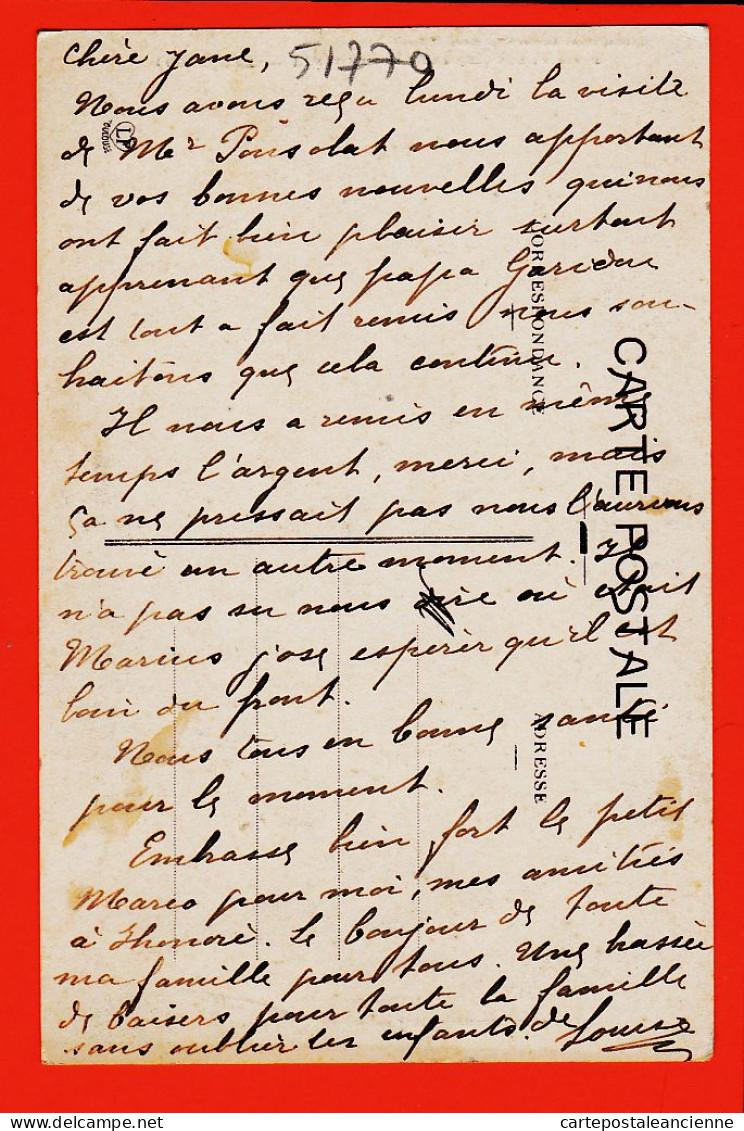 Chère Jane,
51770
Nous avons reçu lundi la visite
de Mr Ponsolat nous apportant
de vos bonnes nouvelles qui nous
ont fait bien plaisir surtout
apprenant que papa Garidou
est tout a fait remis nous sou-
haitons que cela continue.
Il nous a remis en même
temps l'argent, merci, mais
ça ne pressait pas nous l'aurions
trouvé un autre moment. Il
n'a pas su nous dire où était
Marius j'ose espérer qu'il est
loin du front.
Nous tous en bonne santé
pour le moment.
Embrasse bien fort le petit
Marco pour moi, mes amitiés
à Thonoré. Le bonjour de toute
ma famille pour tous. Une
de baisers pour toute la famille
sans oublier les enfants. de Louise
CARTE POSTALE
CORRESPONDANCE
ADRESSE
cartepostaleancienne.com